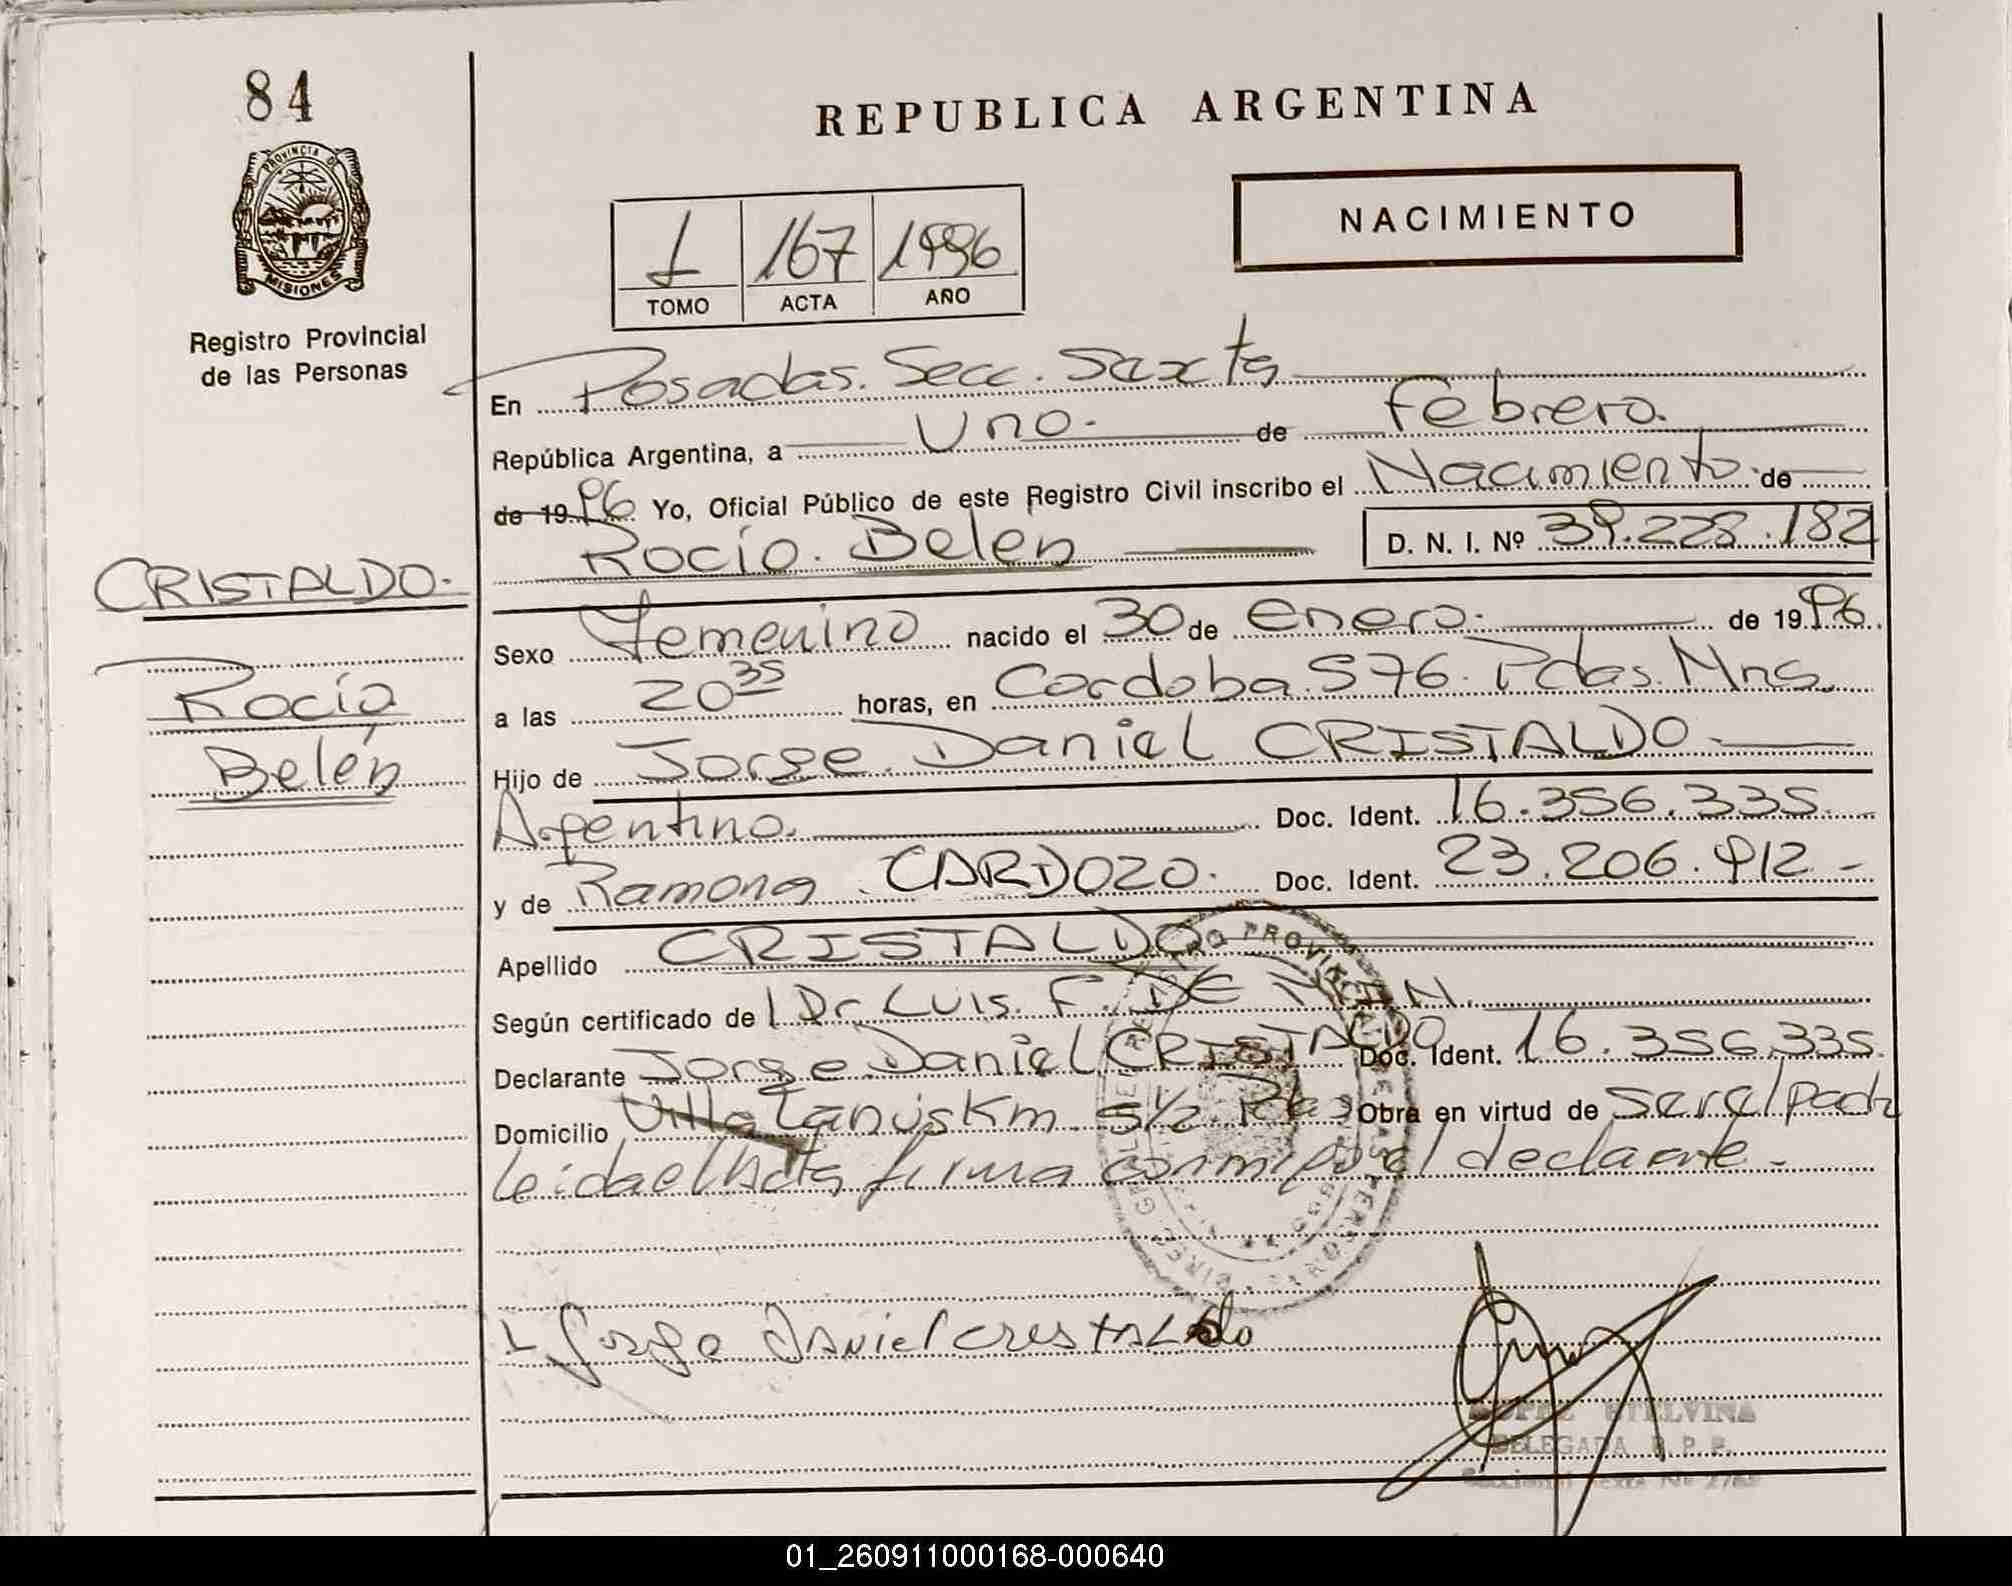 84
PROVINCIA DE
MISIONES
Registro Provincial
de las Personas
REPUBLICA ARGENTINA
NACIMIENTO
1 167 1996
TOMO ACTA AÑO
En Posadas. Secc. Sexta
República Argentina, a Uno. de febrero.
de 1996 Yo, Oficial Público de este Registro Civil inscribo el Nacimiento de
Rocío. Belen D. N. I. Nº 39.228.182
CRISTALDO.
Rocío
Belén
Sexo Femenino nacido el 30 de enero. de 1996.
a las 20 35 horas, en Cordoba. 576. Pdas. Mns.
Hijo de Jorge. Daniel CRISTALDO.
Argentino. Doc. Ident. 16.356.335.
y de Ramona CARDOZO. Doc. Ident. 23.206.912-
Apellido CRISTALDO
Según certificado de Dr. Luis. F. DE
Declarante Jorge Daniel CRISTALDO Doc. Ident. 16.356.335.
Domicilio Villa Lanús Km. 5½ Obra en virtud de ser el padre
leida el Acta firma conmigo el declarante.
Jorge Daniel Cristaldo
LOPEZ ETELVINA
DELEGADA R. P. P.
01_260911000168-000640